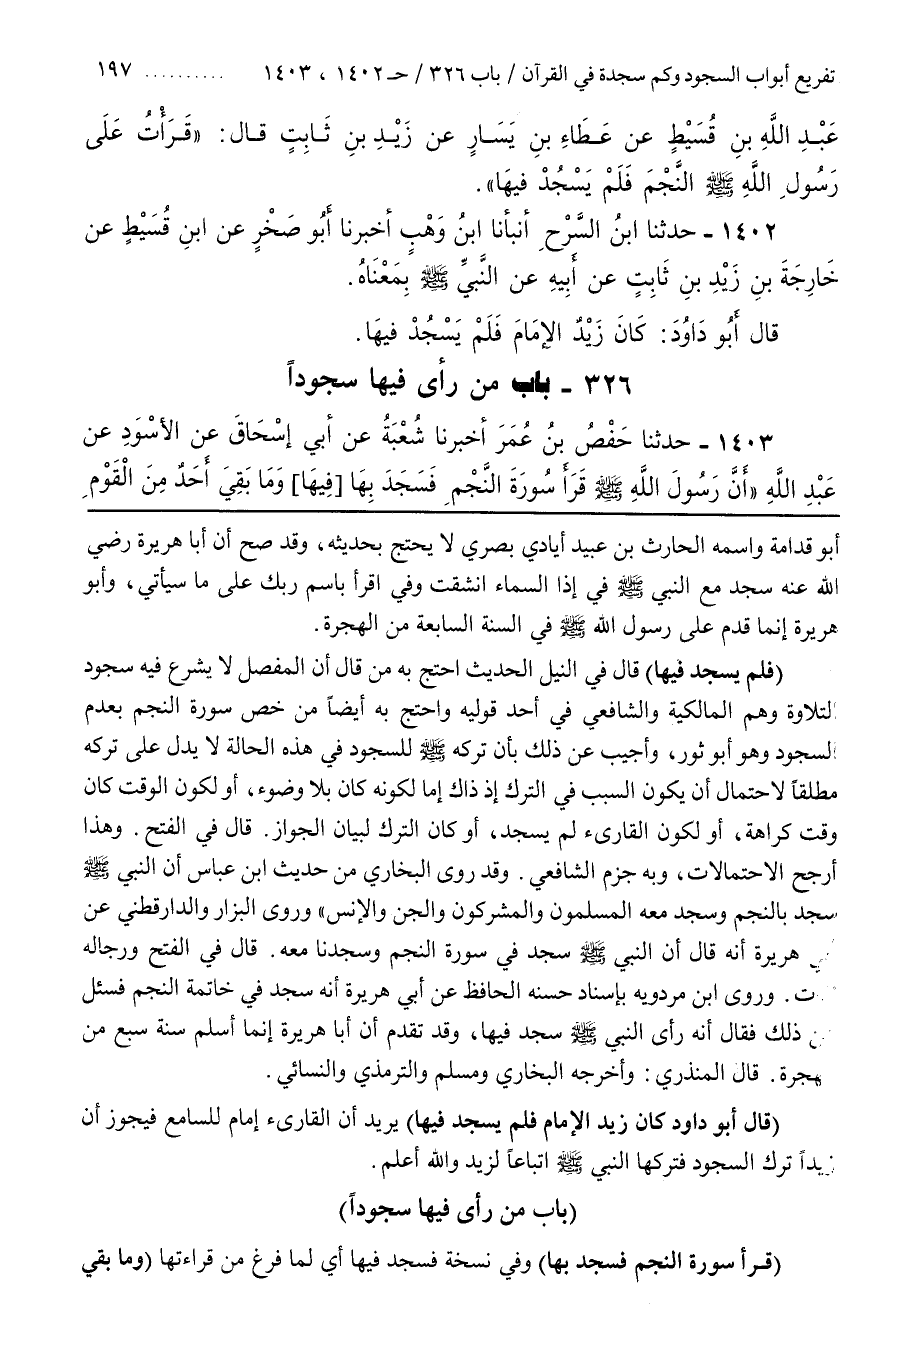 تفريع أبواب السجود وكم سجدة في القرآن / باب ٣٢٦ / حـ ١٤٠٢ ، ١٤٠٣ .......... ١٩٧
عَبْـدِ اللَّهِ بنِ قُسَيْطٍ عن عَـطَاءِ بنِ يَسَـارٍ عن زَيْـدِ بنِ ثَـابِتٍ قـال: «قَـرَأْتُ عَلَى
رَسُولِ اللَّهِ ﷺ النَّجْمَ فَلَمْ يَسْجُدْ فيهَا».
١٤٠٢ ـ حدثنا ابنُ السَّرْحِ أنبأنا ابنُ وَهْبٍ أخبرنا أَبُو صَخْرٍ عن ابنِ قُسَيْطٍ عن
خَارِجَةَ بنِ زَيْدِ بنِ ثَابِتٍ عن أَبِيهِ عن النَّبيِّ ﷺ بِمَعْنَاهُ.
قال أَبُو دَاوُدَ: كَانَ زَيْدٌ الإمَامَ فَلَمْ يَسْجُدْ فيهَا.
٣٢٦ ـ باب من رأى فيها سجوداً
١٤٠٣ ـ حدثنا حَفْصُ بنُ عُمَرَ أخبرنا شُعْبَةُ عن أبي إسْحَاقَ عن الأسْوَدِ عن
عَبْدِ اللَّهِ «أَنَّ رَسُولَ اللَّهِ ﷺ قَرَأَ سُورَةَ النَّجْمِ فَسَجَدَ بِهَا [فِيهَا] وَمَا بَقِيَ أَحَدٌ مِنَ الْقَوْمِ
أبو قدامة واسمه الحارث بن عبيد أيادي بصري لا يحتج بحديثه، وقد صح أن أبا هريرة رضي
الله عنه سجد مع النبي ﷺ في إذا السماء انشقت وفي اقرأ باسم ربك على ما سيأتي، وأبو
هريرة إنما قدم على رسول الله ﷺ في السنة السابعة من الهجرة.
(فلم يسجد فيها) قال في النيل الحديث احتج به من قال أن المفصل لا يشرع فيه سجود
التلاوة وهم المالكية والشافعي في أحد قوليه واحتج به أيضاً من خص سورة النجم بعدم
السجود وهو أبو ثور، وأجيب عن ذلك بأن تركه ﷺ للسجود في هذه الحالة لا يدل على تركه
مطلقاً لاحتمال أن يكون السبب في الترك إذ ذاك إما لكونه كان بلا وضوء، أو لكون الوقت كان
وقت كراهة، أو لكون القارىء لم يسجد، أو كان الترك لبيان الجواز. قال في الفتح. وهذا
أرجح الاحتمالات، وبه جزم الشافعي. وقد روى البخاري من حديث ابن عباس أن النبي ﷺ
سجد بالنجم وسجد معه المسلمون والمشركون والجن والإنس» وروى البزار والدارقطني عن
هريرة أنه قال أن النبي ﷺ سجد في سورة النجم وسجدنا معه. قال في الفتح ورجاله
ت. وروى ابن مردويه بإسناد حسنه الحافظ عن أبي هريرة أنه سجد في خاتمة النجم فسئل
ذلك فقال أنه رأى النبي ﷺ سجد فيها، وقد تقدم أن أبا هريرة إنما أسلم سنة سبع من
هجرة. قال المنذري: وأخرجه البخاري ومسلم والترمذي والنسائي.
(قال أبو داود كان زيد الإمام فلم يسجد فيها) يريد أن القارىء إمام للسامع فيجوز أن
زيداً ترك السجود فتركها النبي ﷺ اتباعاً لزيد والله أعلم.
(باب من رأى فيها سجوداً)
(قـرأ سورة النجم فسجد بها) وفي نسخة فسجد فيها أي لما فرغ من قراءتها (وما بقي